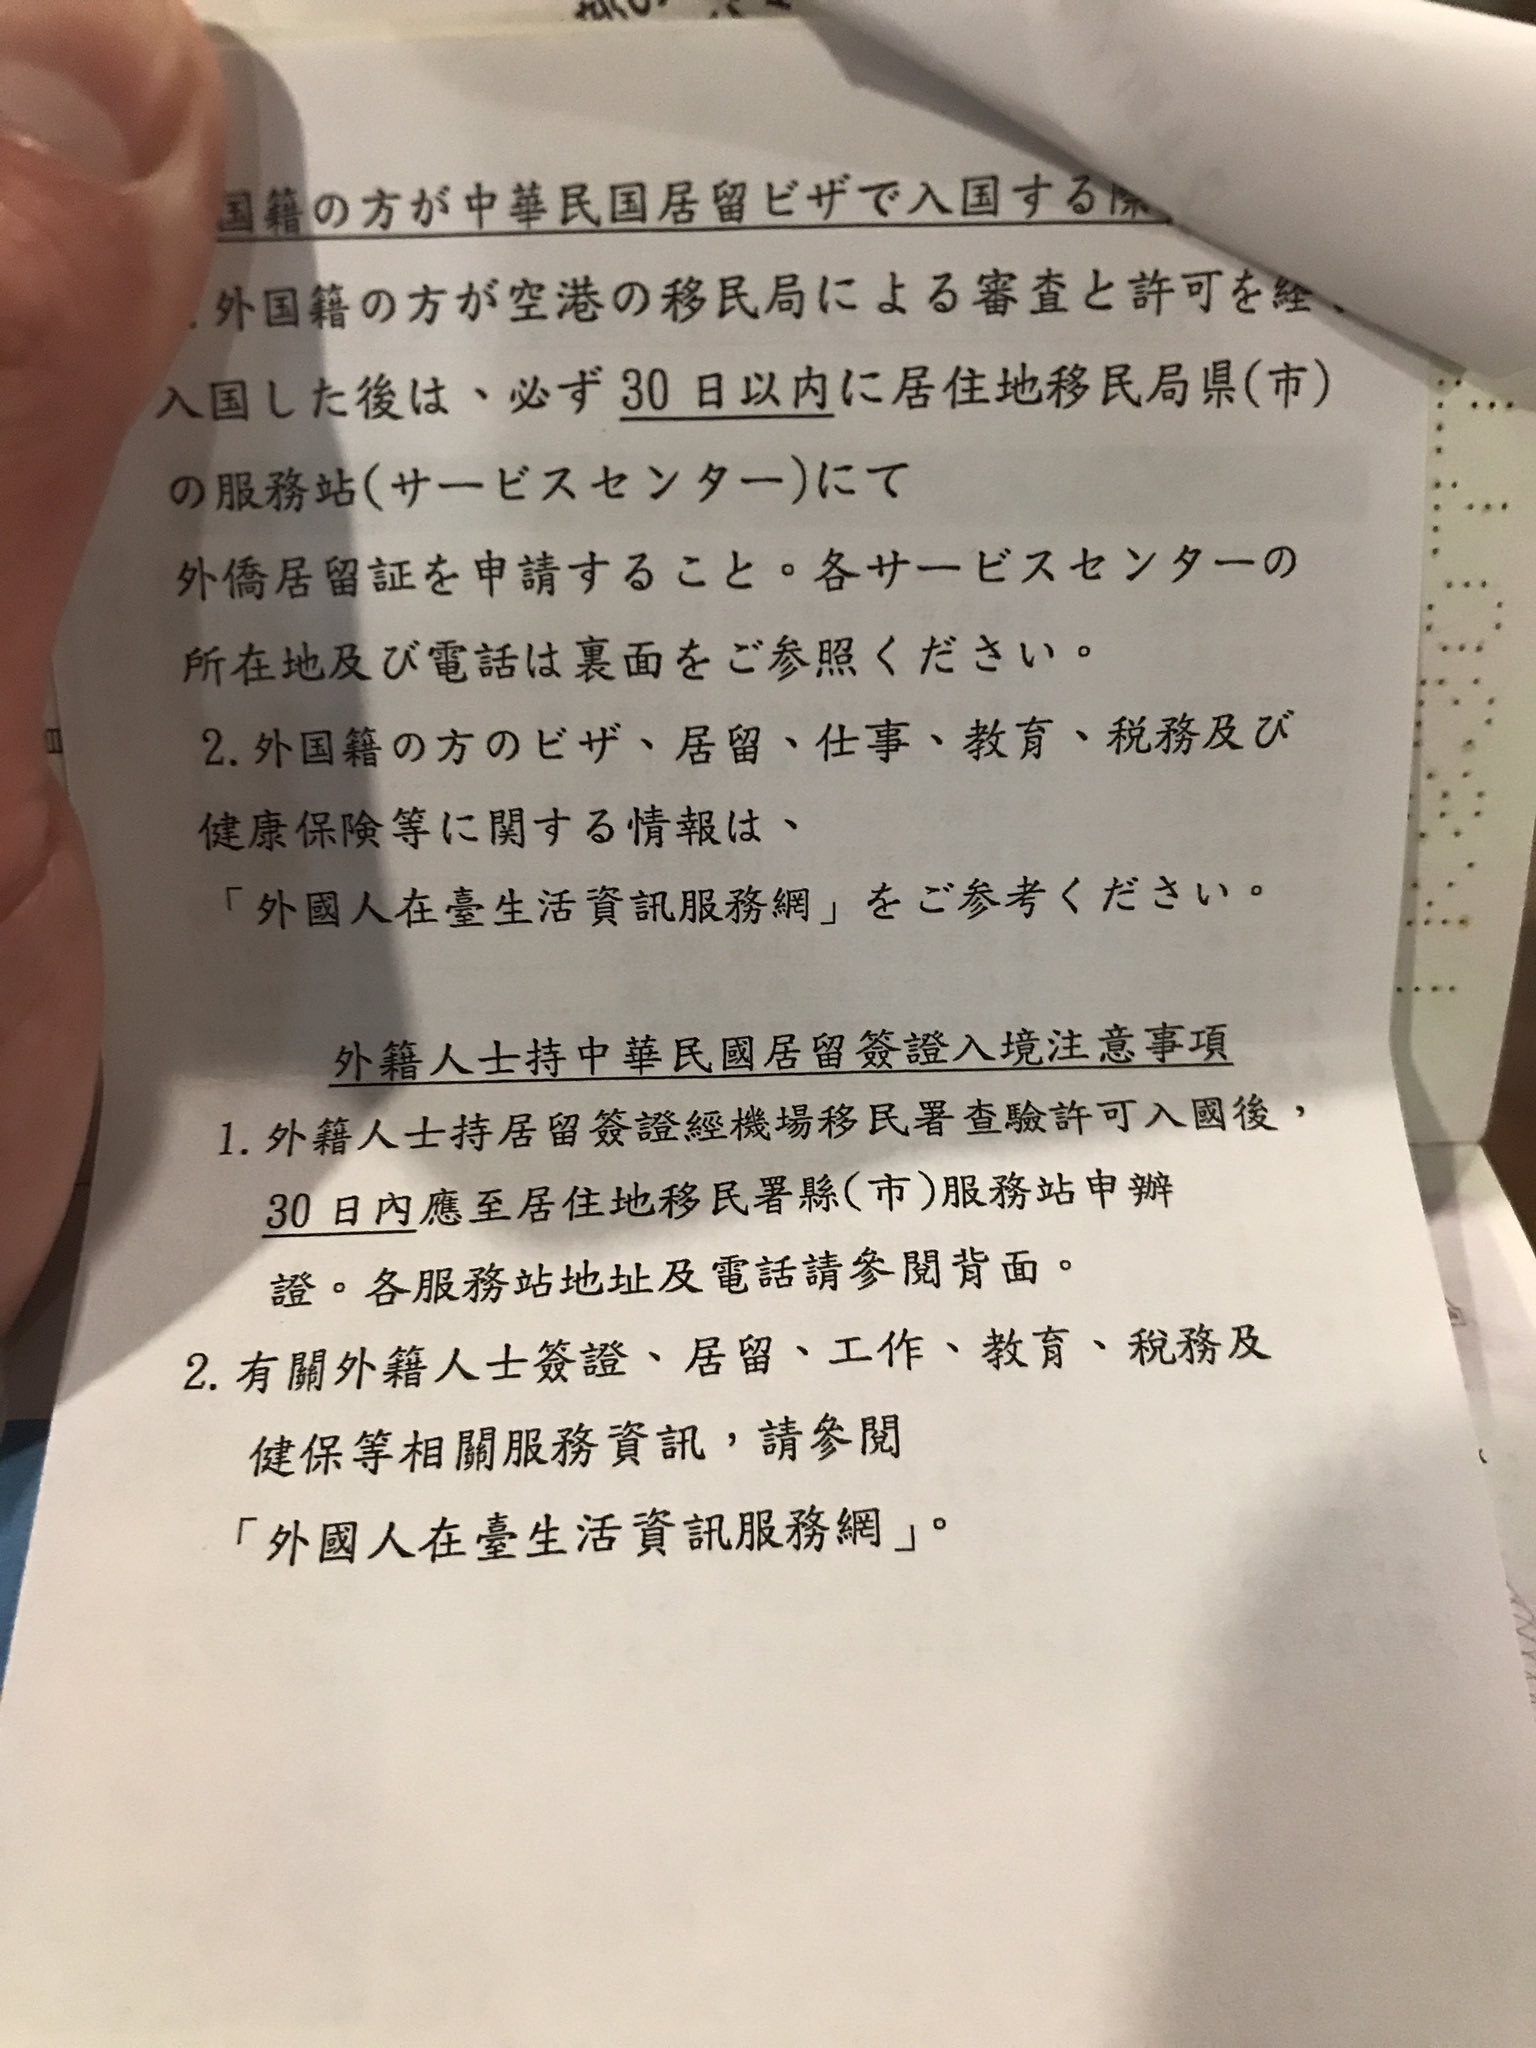 国籍の方が中華民国居留ビザで入国する際
外国籍の方が空港の移民局による審査と許可を経
入国した後は、必ず 30 日以内に居住地移民局県(市)
の服務站(サービスセンター)にて
外僑居留証を申請すること。各サービスセンターの
所在地及び電話は裏面をご参照ください。
2. 外国籍の方のビザ、居留、仕事、教育、税務及び
健康保険等に関する情報は、
「外國人在臺生活資訊服務網」をご参考ください。
外籍人士持中華民國居留簽證入境注意事項
1. 外籍人士持居留簽證經機場移民署查驗許可入國後，
30 日內應至居住地移民署縣(市)服務站申辦
證。各服務站地址及電話請參閱背面。
2. 有關外籍人士簽證、居留、工作、教育、稅務及
健保等相關服務資訊，請參閱
「外國人在臺生活資訊服務網」。